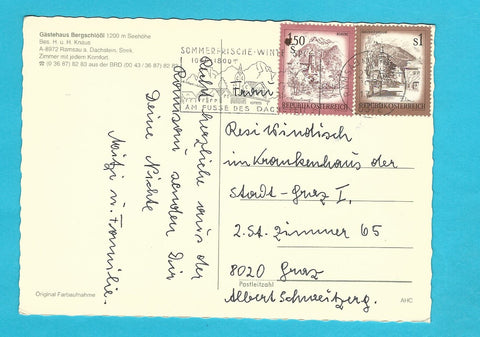 Gästehaus Bergschlößl 1200 m Seehöhe
Bes. H. u. H. Knaus
A-8972 Ramsau a. Dachstein, Stmk.
Zimmer mit jedem Komfort
(0 36 87) 82 83 aus der BRD (00 43 / 36 87) 82
SOMMERFRISCHE-WINTER
AM FUSSE DES DACHS
1.50
REPUBLIK ÖSTERREICH
S1
REPUBLIK ÖSTERREICH
herzliche aus der
Ramsau senden Dir
Deine Nichte
Mitzi u. Familie.
Frau
Resi Windisch
im Krankenhaus der
Stadt-Graz I,
2. St. Zimmer 65
8020 Graz
Postleitzahl
Albert Schweitzerg.
Original Farbaufnahme
AHC